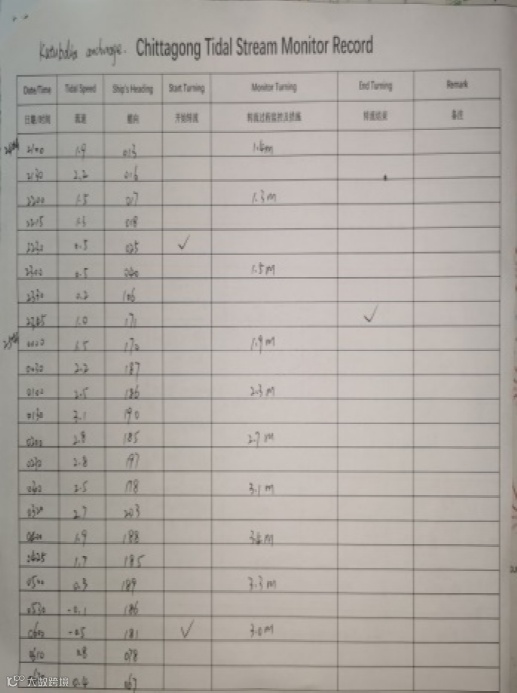 Kutubdia anchorage. Chittagong Tidal Stream Monitor Record
Date/Time Tidal Speed Ship's Heading Start Turning Monitor Turning End Turning Remark
日期/时间 流速 艏向 开始转流 转流过程监控及措施 转流结束 备注
2100 1.9 013 1.4m
2130 2.2 016
2200 1.5 017 1.3m
2215 018
2230 0.5 025 ✓
2300 0.5 040 1.5m
2330 0.2 106
2345 1.0 171 ✓
0000 1.5 172 1.9m
0030 2.2 187
0100 2.5 186 2.3m
0130 3.1 190
0200 2.8 185 2.7m
0230 2.8 197
0300 2.5 178 3.1m
0320 2.7 203
0400 1.9 188 3.4m
0425 1.7 185
0500 0.3 189 3.3m
0530 -0.1 186
0600 -0.5 181 ✓ 3.0m
0610 0.8 078
0.4 067
大数跨境